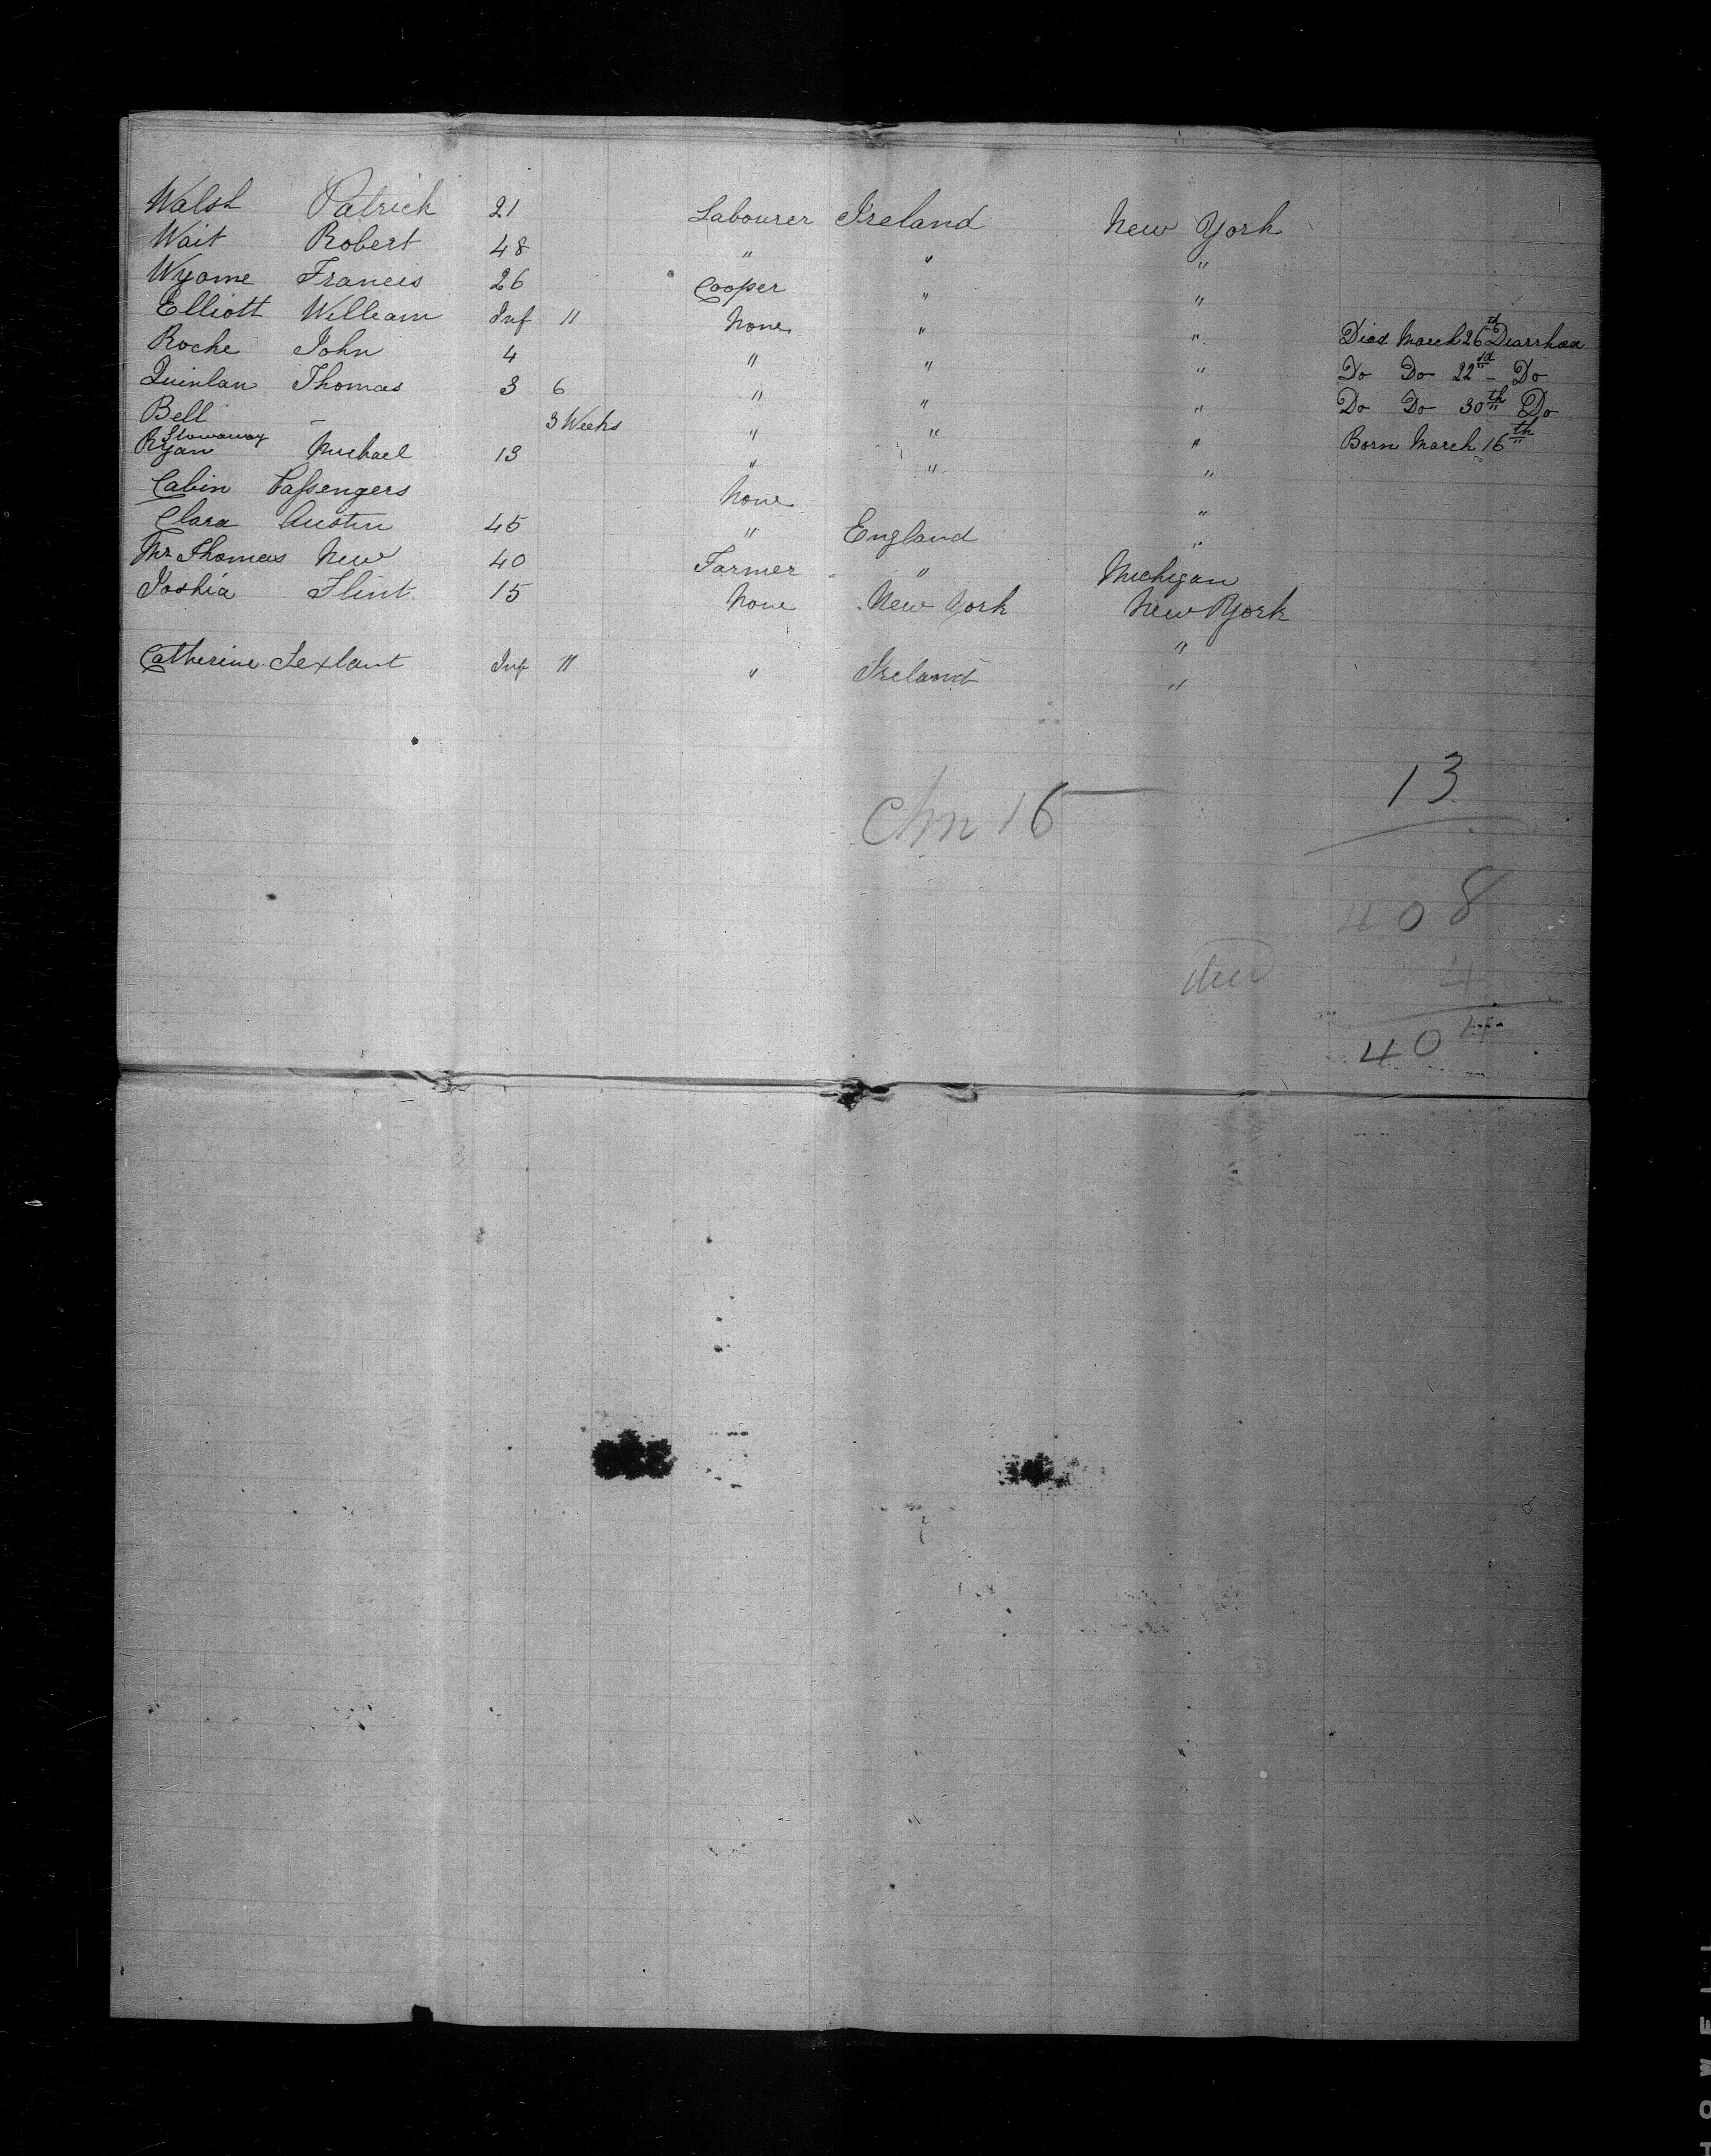 Walsh Patrick 21 Labourer Ireland New York
Wait Robert 48 " " "
Wyome Francis 26 Cooper " "
Elliott William Inf 11 None " " Died March 26th Diarrhoea
Roche John 4 " " " Do Do 22nd - Do
Quinlan Thomas 3 6 " " " Do Do 30th Do
Bell - 3 Weeks " " " Born March 16th
Stowaway
Ryan Michael 13 " " "
Cabin Passengers None "
Clara Austin 45 " England "
Mr Thomas New 40 Farmer " Michigan
Joshia Flint 15 None New York New York
"
Catherine Sexlant Inf 11 " Ireland "
13
Chn 15
408
4
404
HOWELL